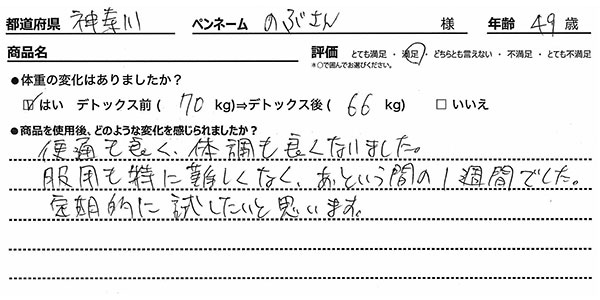 都道府県 神奈川 ペンネーム のぶさん 様 年齢 49 歳
商品名 評価 とても満足 ・ 満足 ・ どちらとも言えない ・ 不満足 ・ とても不満足
※○で囲んでお選びください。
●体重の変化はありましたか？
☑はい デトックス前 ( 70 kg)⇒デトックス後 ( 66 kg) □いいえ
●商品を使用後、どのような変化を感じられましたか？
便通も良く、体調も良くなりました。
服用も特に難しくなく、あっという間の1週間でした。
定期的に試したいと思います。